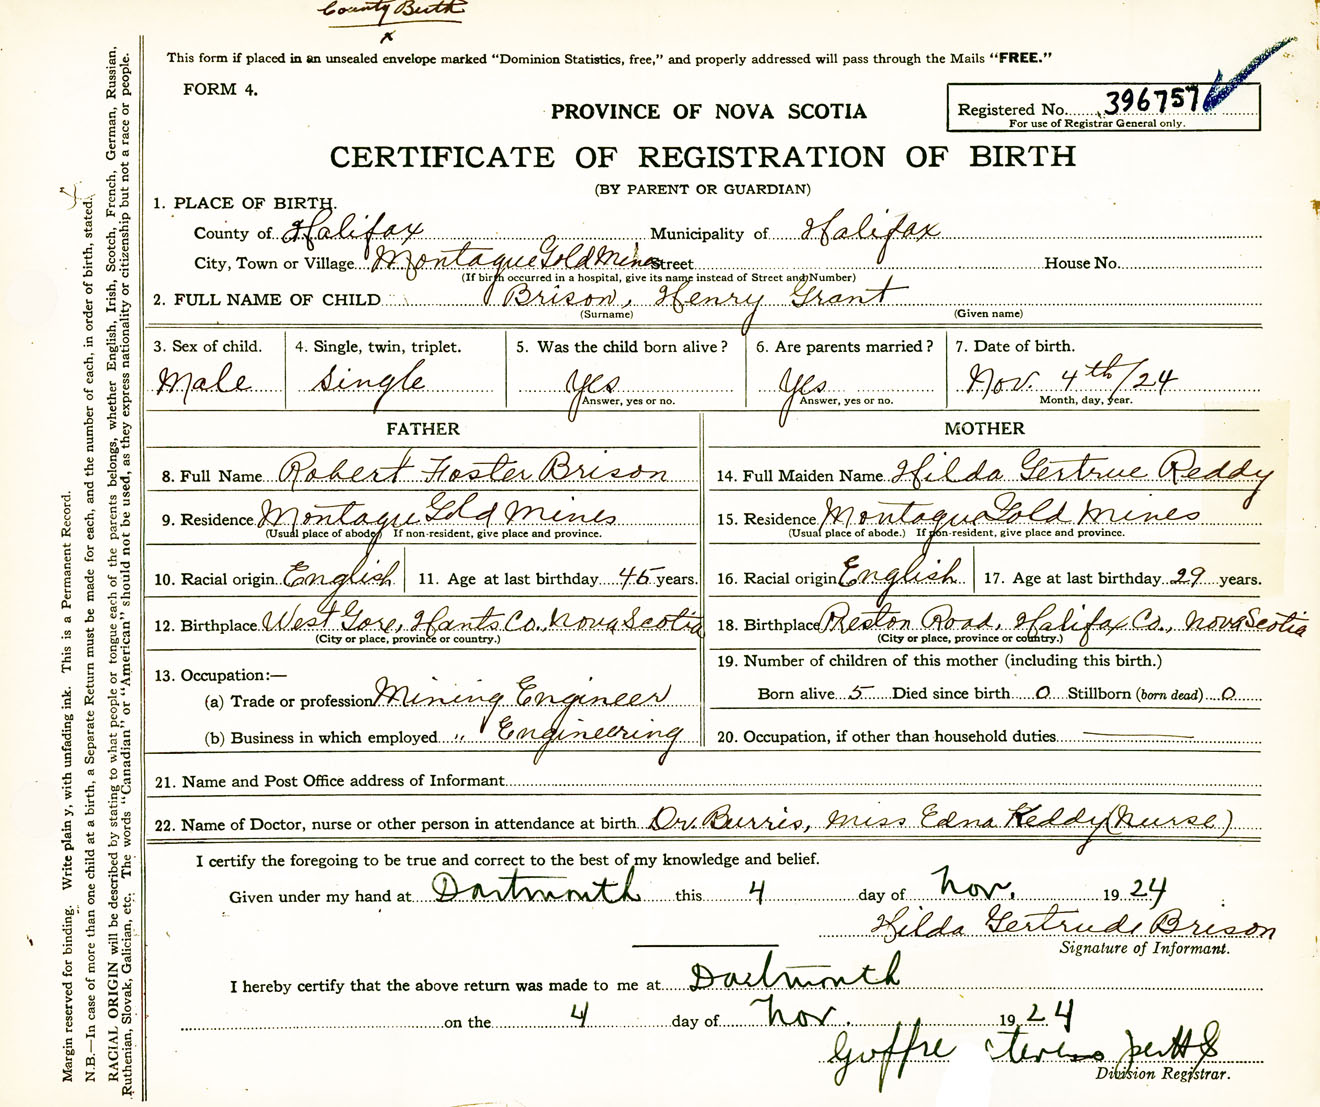 County Birth
x
This form if placed in an unsealed envelope marked "Dominion Statistics, free," and properly addressed will pass through the Mails "FREE."
FORM 4.
PROVINCE OF NOVA SCOTIA
Registered No. 396757
For use of Registrar General only.
CERTIFICATE OF REGISTRATION OF BIRTH
(BY PARENT OR GUARDIAN)
1. PLACE OF BIRTH.
County of Halifax Municipality of Halifax
City, Town or Village Montague Gold Mines Street House No.
(If birth occurred in a hospital, give its name instead of Street and Number)
2. FULL NAME OF CHILD Brison, Henry Grant
(Surname) (Given name)
3. Sex of child. 4. Single, twin, triplet. 5. Was the child born alive? 6. Are parents married? 7. Date of birth.
Male Single Yes Yes Nov. 4th/24
Answer, yes or no. Answer, yes or no. Month, day, year.
FATHER MOTHER
8. Full Name Robert Foster Brison 14. Full Maiden Name Hilda Gertrue Reddy
9. Residence Montague Gold Mines 15. Residence Montague Gold Mines
(Usual place of abode) If non-resident, give place and province. (Usual place of abode.) If non-resident, give place and province.
10. Racial origin English 11. Age at last birthday 45 years. 16. Racial origin English 17. Age at last birthday 29 years.
12. Birthplace West Gore, Hants Co., Nova Scotia 18. Birthplace Preston Road, Halifax Co., Nova Scotia
(City or place, province or country.) (City or place, province or country.)
13. Occupation:— 19. Number of children of this mother (including this birth.)
(a) Trade or profession Mining Engineer Born alive 5 Died since birth 0 Stillborn (born dead) 0
(b) Business in which employed " Engineering 20. Occupation, if other than household duties
21. Name and Post Office address of Informant
22. Name of Doctor, nurse or other person in attendance at birth Dr. Burris, Miss Edna Keddy (Nurse)
I certify the foregoing to be true and correct to the best of my knowledge and belief.
Given under my hand at Dartmouth this 4 day of Nov. 1924
Hilda Gertrude Brison
Signature of Informant.
I hereby certify that the above return was made to me at Dartmouth
on the 4 day of Nov. 1924
Division Registrar.
Margin reserved for binding. Write plain y, with unfading ink. This is a Permanent Record.
N.B.—In case of more than one child at a birth, a Separate Return must be made for each, and the number of each, in order of birth, stated.
RACIAL ORIGIN will be described by stating to what people or tongue each of the parents belongs, whether English, Irish, Scotch, French, German, Russian,
Ruthenian, Slovak, Galician, etc. The words "Canadian" or "American" should not be used, as they express nationality or citizenship but not a race or people.